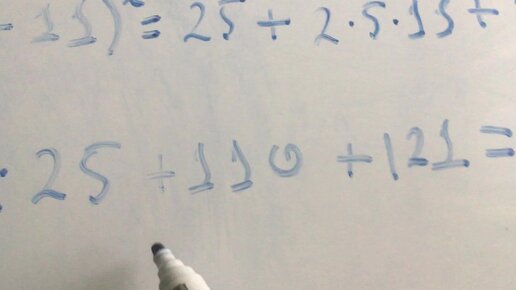 - 11)² = 25 + 2·5·11 +
: 25 + 110 + 121 =